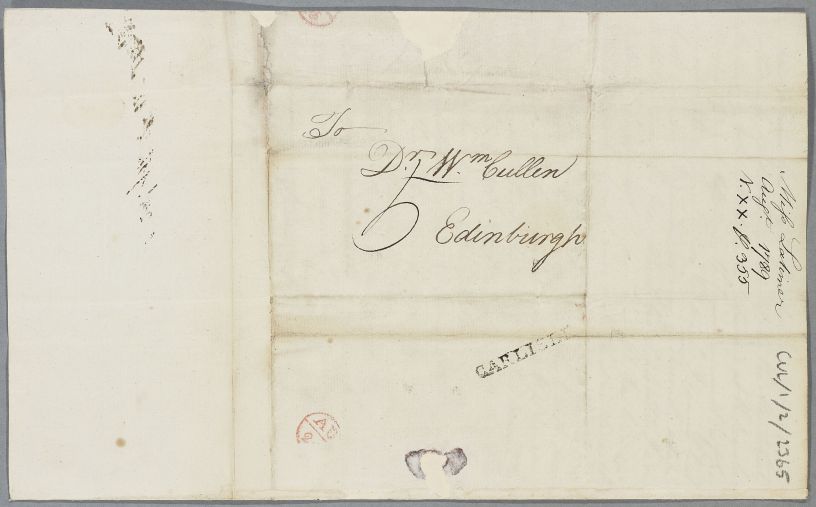 To
Dr. Wm Cullen
Edinburgh
CARLISLE
Miss Latimer
Augt. 1789
N. XX. P. 355
CUL/1/2/2365